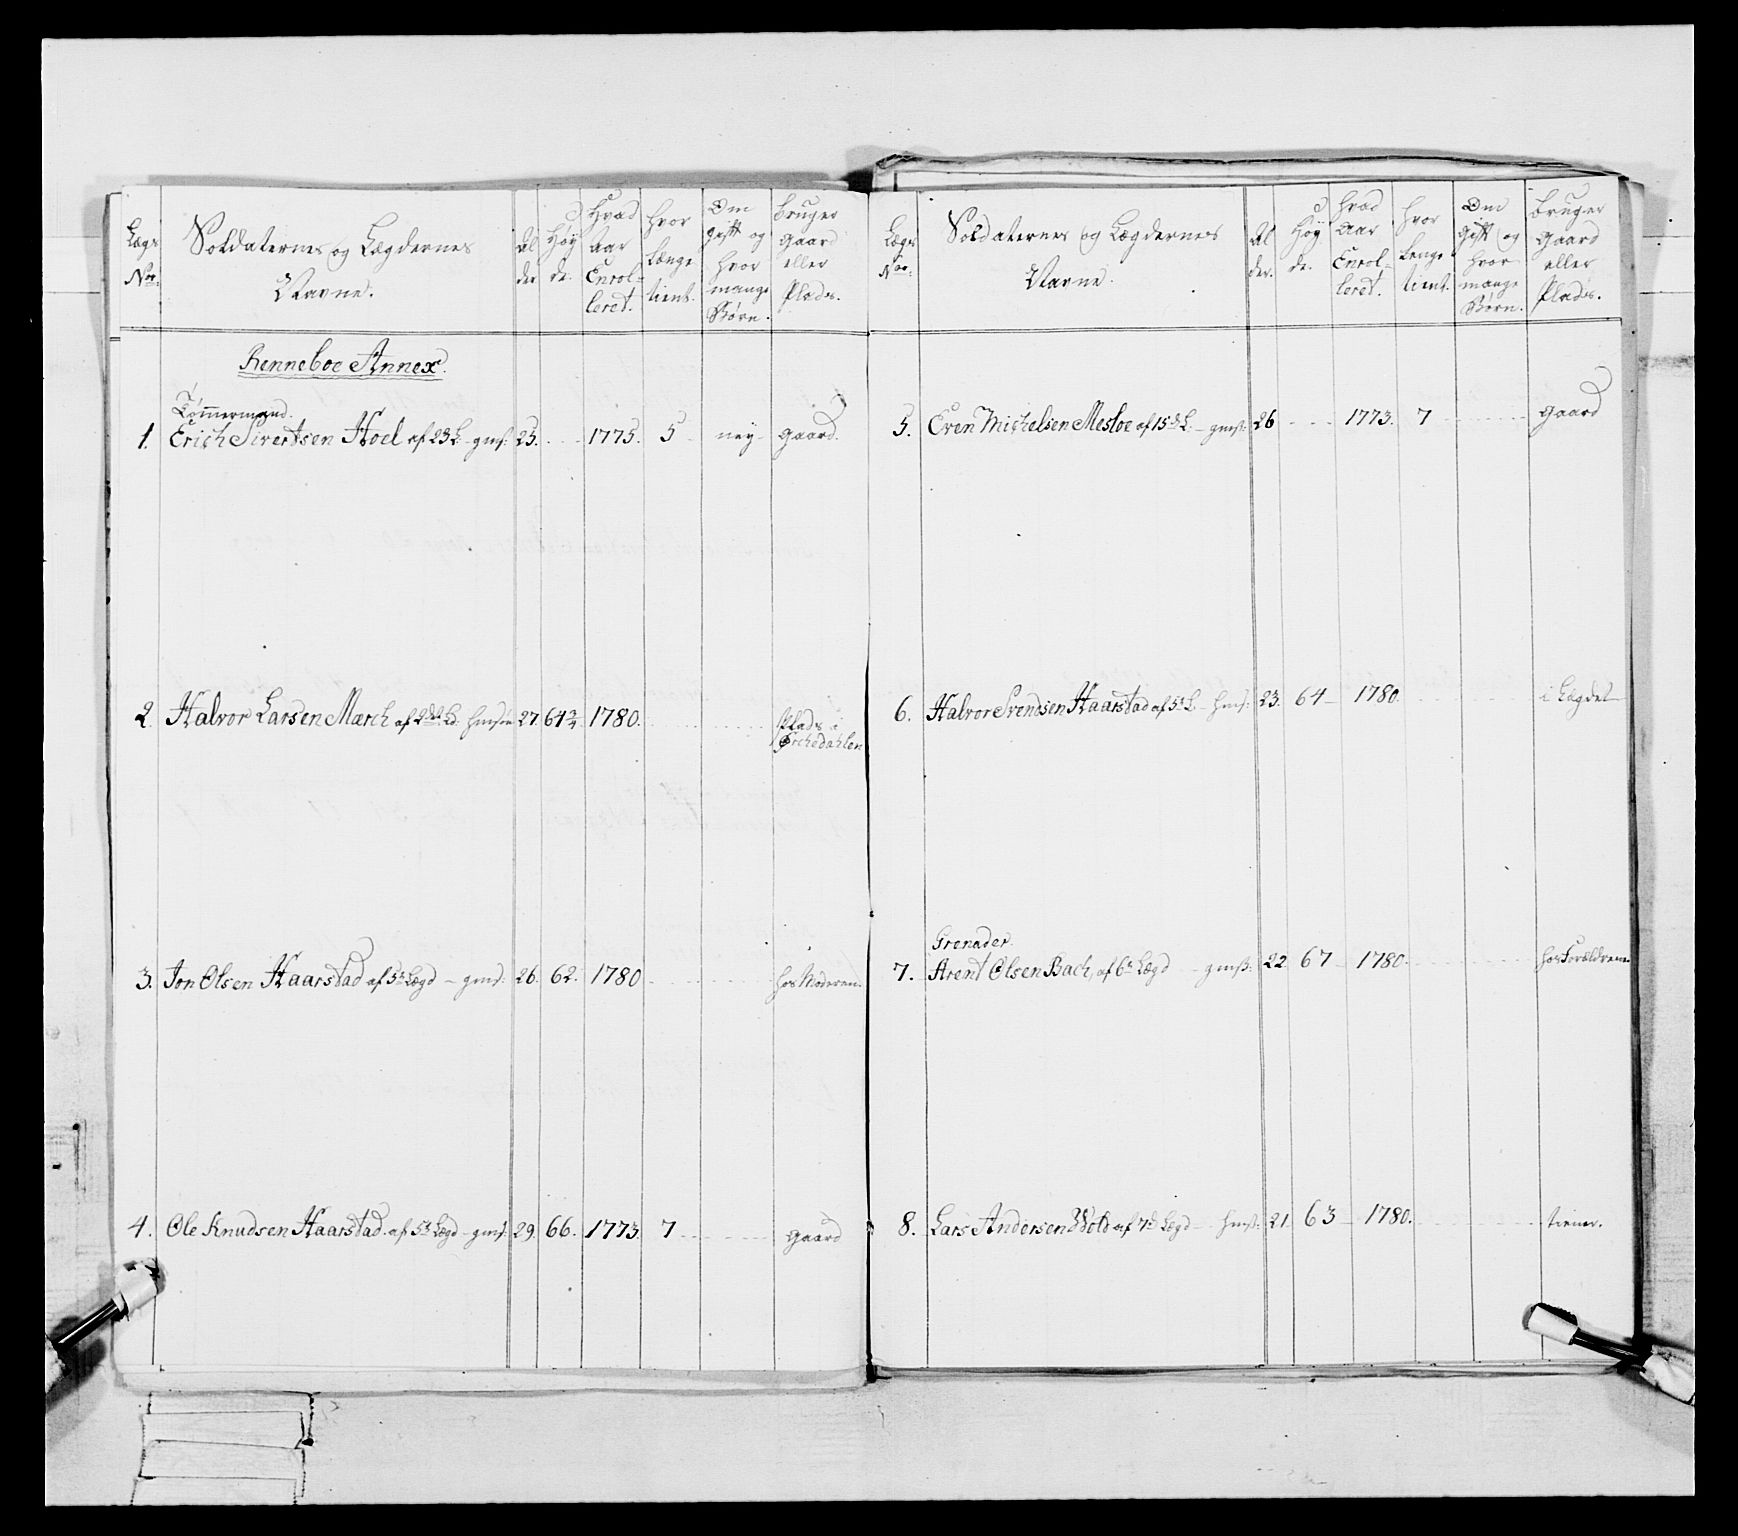 Lægs No:
Soldaternes og Lægdernes Navne.
Al der
Høy de.
Hvad Aar Enrol- leret.
hvor længe tient.
Om gift og hvor mange Børn.
bruger gaard eller Plads.
Renneboe Annex.
Tømmermand.
1. Erich Sivertsen Hoel af 23 L - gms: 25. 1775. 5 ney gaard.
2. Halvor Larsen Mærch af 2den L 27. 64 3/4 1780. Plads i
Orchedahlen
3. Jon Olsen Haarstad af 5te Lægd - gms: 26. 62. 1780 hos Moderen.
4. Ole Knudsen Haarstad af 5te Lægd - gms: 29. 66. 1773. 7 gaard
Lægs No:
Soldaternes og Lægdernes Navne.
Al der.
Høy de.
hvad Aar Enrol- leret.
hvor lenge tient.
Om gift og hvor mange Børn.
bruger gaard eller Plads.
5. Even Michelsen Mesloe af 15de L. - gmst: 26 1773. 7 gaard
6. Halvor Svendsen Haarstad af 5te L - hmst: 23. 64 - 1780. i Lægdet
Grenader.
7. Arent Olsen Bach, af 6te Lægd - gmst: 22 67 - 1780. hos Forældrene
8. Lars Andersen Wold af 7de Lægd - hmst: 21. 63 - 1780. tiener.